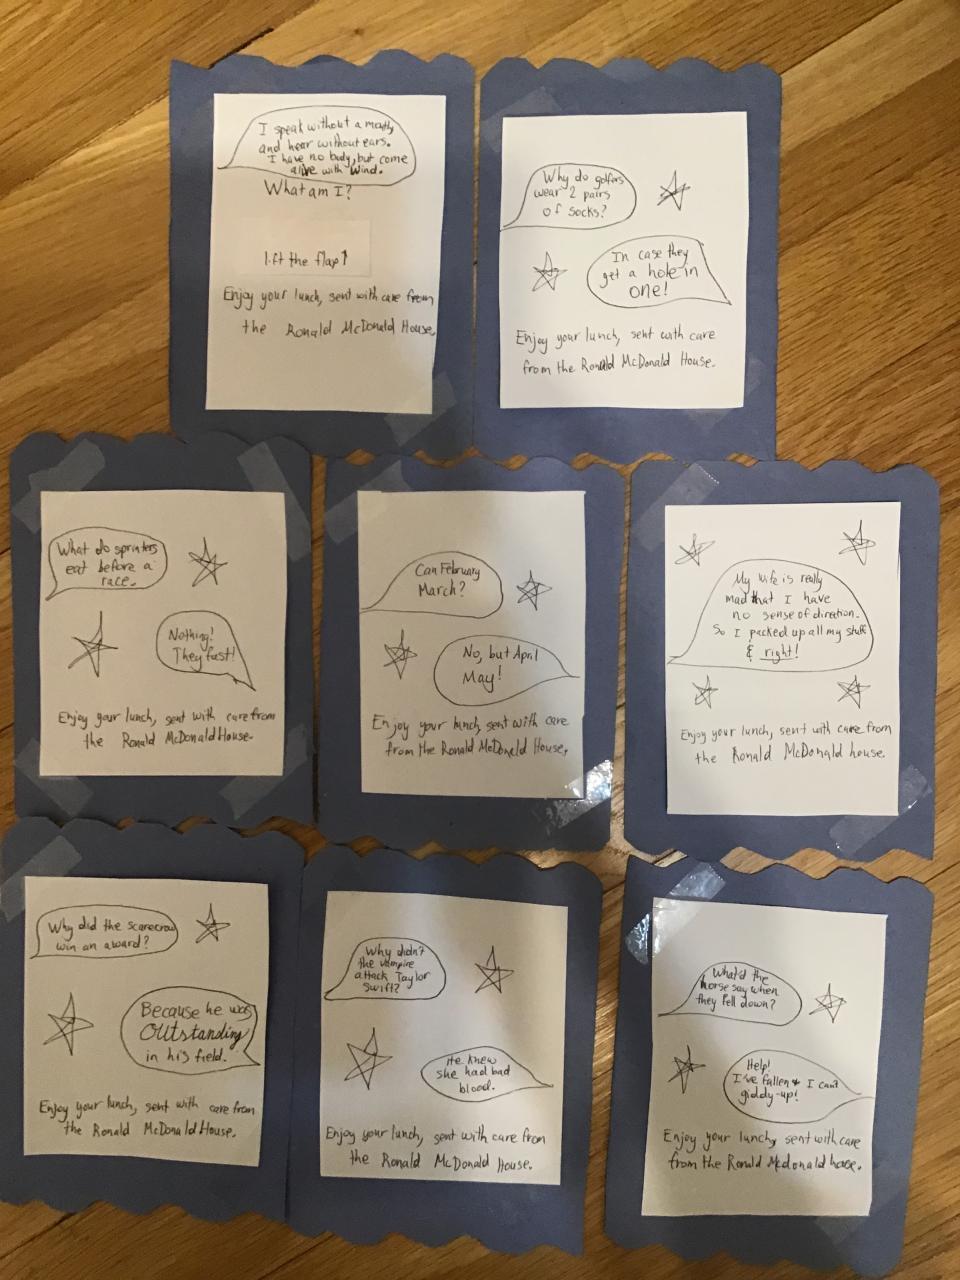 I speak without a mouth,
and hear without ears.
I have no body, but come
alive with wind.
What am I?
lift the flap↑
Enjoy your lunch, sent with care from
the Ronald McDonald House.
Why do golfers
wear 2 pairs
of socks?
In case they
get a hole in
one!
Enjoy your lunch, sent with care
from the Ronald McDonald House.
What do sprinters
eat before a
race.
Nothing!
They fast!
Enjoy your lunch, sent with care from
the Ronald McDonald House.
Can February
March?
No, but April
May!
Enjoy your lunch, sent with care
from the Ronald McDonald House.
My wife is really
mad that I have
no sense of direction.
So I packed up all my stuff
& right!
Enjoy your lunch, sent with care from
the Ronald McDonald house.
Why did the scarecrow
win an award?
Because he was
OUtstanding
in his field.
Enjoy your lunch, sent with care from
the Ronald McDonald House.
Why didn't
the vampire
attack Taylor
Swift?
He knew
she had bad
blood.
Enjoy your lunch, sent with care from
the Ronald McDonald House.
What'd the
horse say when
they fell down?
Help!
I've fallen & I can't
giddy-up!
Enjoy your lunch, sent with care
from the Ronald Mcdonald house.